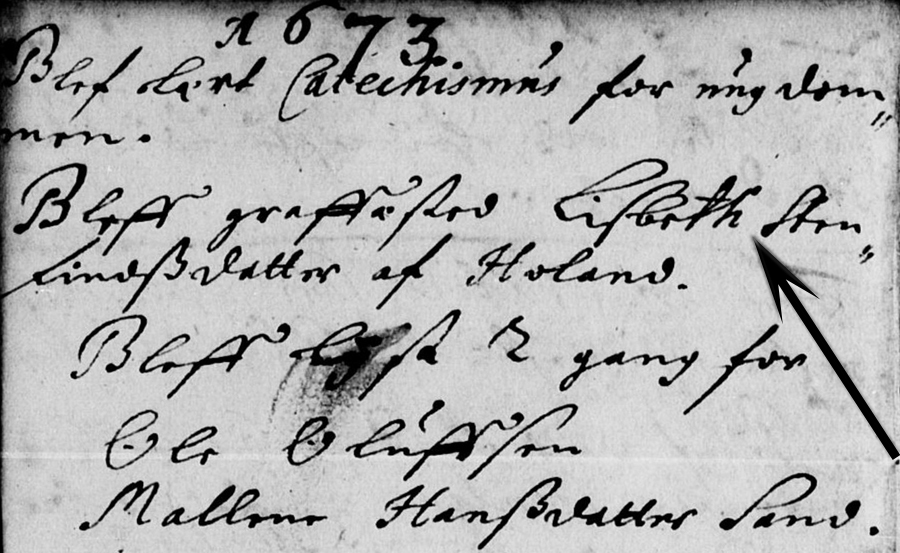 A 1673
Blef lært Catechismus for ungdom„
men.
Bleff graffæsted Lisbeth Sten„
findßdatter af Holand.
Bleff lyst 2 gang for
Ole Oluffsen
Mallene Hanßdatter Sand.